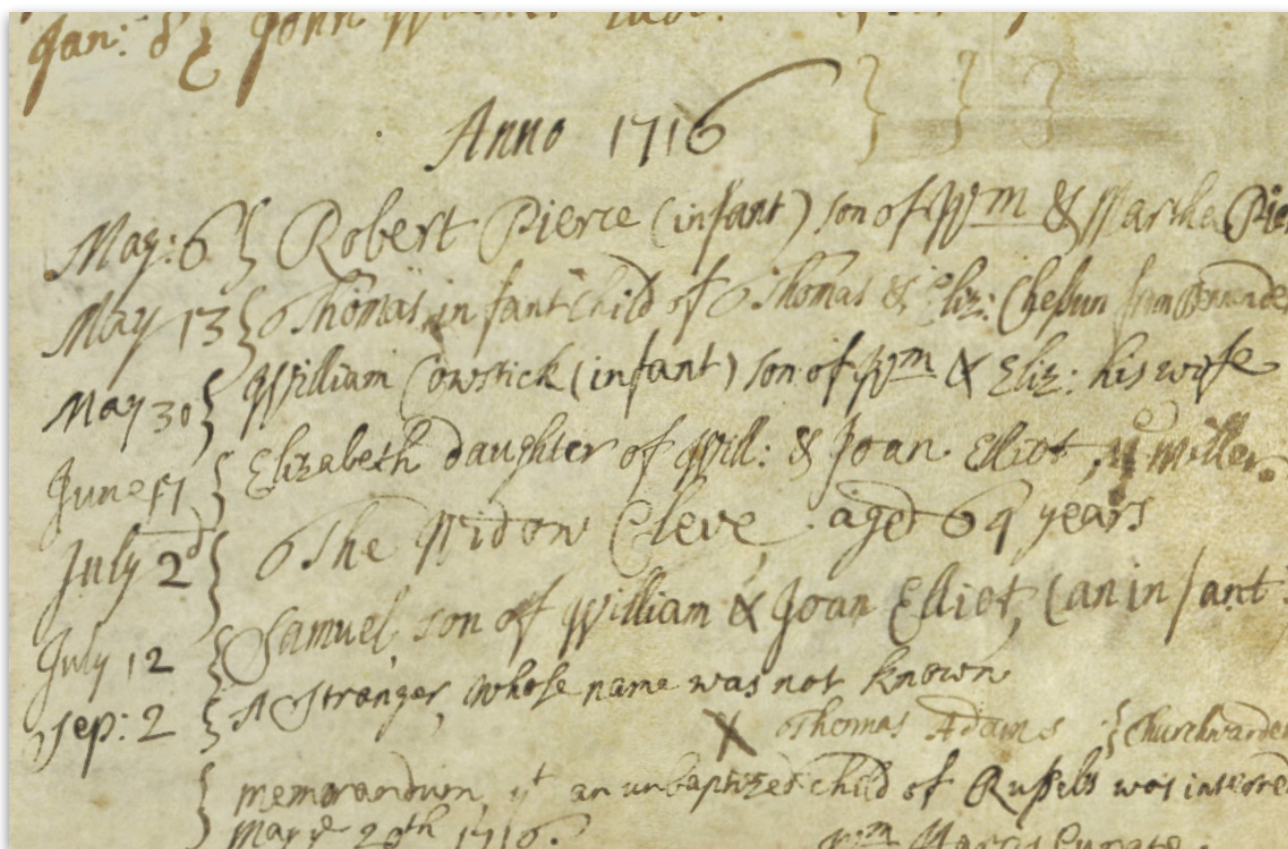 Jan: 8 } John
Anno 1716 } } }
May: 6 } Robert Pierce (infant) son of Wm & Martha Pie
May 13 { Thomas, infant child of Thomas & Eliz: Chesun from
May 30 } William Cowstick (infant) son of Wm & Eliz: his wife
June { Elizabeth daughter of Will: & Joan Elliot, ye miller.
July 2d { The Widow Cleve, aged 64 years
July 12 { Samuel, son of William & Joan Elliot, (an infant
Sep: 2 { A Stranger, whose name was not known
X Thomas Adams { Churchwarden
{ memorandum, yt an unbaptized child of Russels was interred
May ye 29th 1716. Wm Harris Curate.